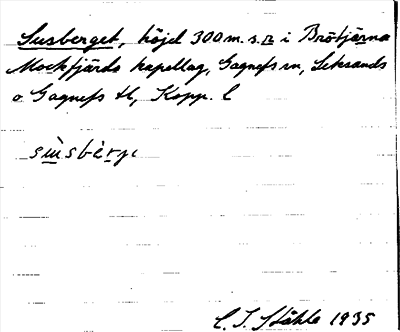 Susberget, höjd 300 m. s. n i Brötjärna
Mockfjärds kapellag, Gagnefs sn, Leksands
o Gagnefs tl, Kopp. l
sùsbèrjɛ
C. I. Ståhle 1935